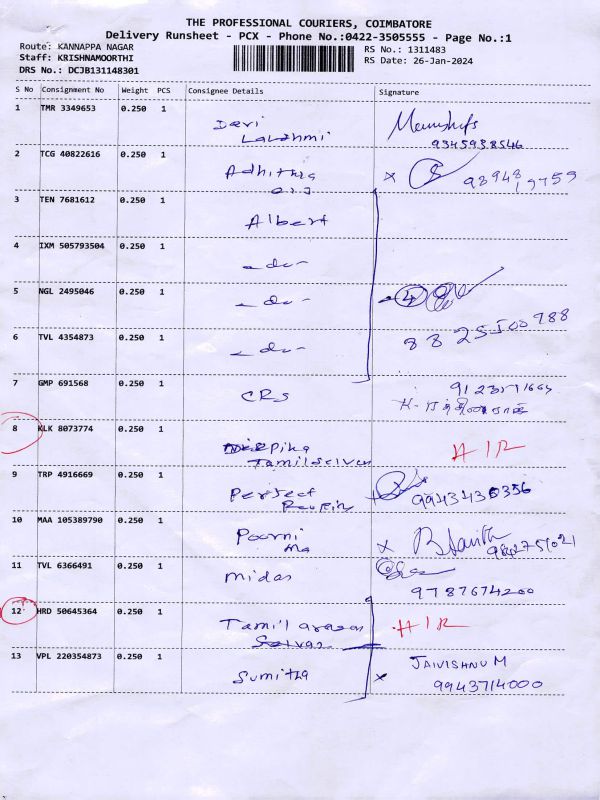 THE PROFESSIONAL COURIERS, COIMBATORE
Delivery Runsheet - PCX - Phone No.:0422-3505555 - Page No.:1
Route: KANNAPPA NAGAR
RS No.: 1311483
Staff: KRISHNAMOORTHI
RS Date: 26-Jan-2024
DRS No.: DCJB131148301
S No Consignment No Weight PCS Consignee Details Signature
1 TMR 3349653 0.250 1 Devi
Lakshmi
9345938546
2 TCG 40822616 0.250 1 Adhithya
x
3 TEN 7681612 0.250 1 Albert
4 IXM 505793504 0.250 1 -do-
5 NGL 2495046 0.250 1 -do- 4
6 TVL 4354873 0.250 1 -do- 88 25500788
7 GMP 691568 0.250 1 CRS
8 KLK 8073774 0.250 1 Deepika
Tamilselvan
HIR
9 TRP 4916669 0.250 1 Perfect
9943430356
10 MAA 105389790 0.250 1 Poorni
ma
x
11 TVL 6366491 0.250 1 midas
9787674200
12 HRD 50645364 0.250 1 Tamil arasan
Selvan
HIR
13 VPL 220354873 0.250 1 Sumitha x JAIVISHNU M
9943714000